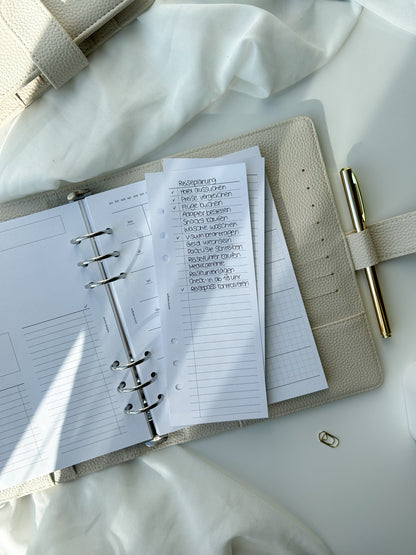 Reiseplanung
✓ Hotel aussuchen
✓ Preise vergleichen
✓ Flüge buchen
Adapter besorgen
Snacks kaufen
Wäsche waschen
✓ Visum beantragen
Geld wechseln
Packliste schreiben
Reiseführer kaufen
Medikamente
Reiseunterlagen
Check-in ab 18 Uhr
✓ Reisepass kontrollieren